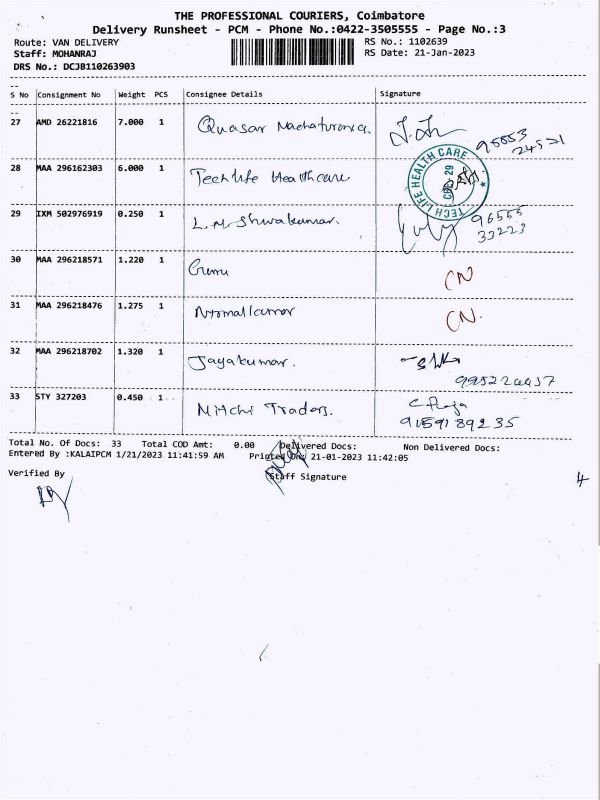 THE PROFESSIONAL COURIERS, Coimbatore
Delivery Runsheet - PCM - Phone No.:0422-3505555 - Page No.:3
Route: VAN DELIVERY RS No.: 1102639
Staff: MOHANRAJ RS Date: 21-Jan-2023
DRS No.: DCJB110263903
S No Consignment No Weight PCS Consignee Details Signature
27 AMD 26221816 7.000 1 Quasar
28 MAA 296162303 6.000 1 Techlife Healthcare
TECH LIFE HEALTH CARE
CBE 29
29 IXM 502976919 0.250 1 L.M. Shivakumar.
96555
33223
30 MAA 296218571 1.220 1 Guru CN
31 MAA 296218476 1.275 1 Nirmalkumar CN.
32 MAA 296218702 1.320 1 Jayakumar.
33 STY 327203 0.450 1 Mitchi Traders.
Total No. Of Docs: 33 Total COD Amt: 0.00 Delivered Docs: Non Delivered Docs:
Entered By :KALAIPCM 1/21/2023 11:41:59 AM Printed On: 21-01-2023 11:42:05
Verified By Staff Signature
4